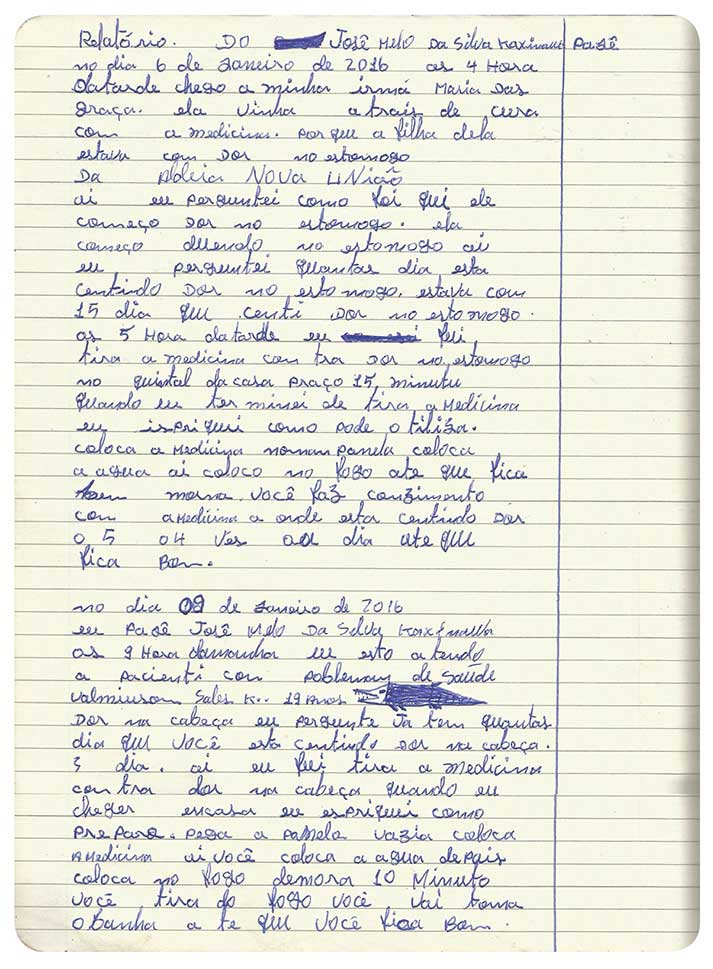 Relatório. DO José Melo Da Silva Kaxinawá Pajé
no dia 6 de Janeiro de 2016 as 4 Hora
datarde chego a minha irmá Maria Das
graça. ela vinha atrais de cura
com a medicina. por que a filha dela
estava com DOR no estomogo
Da Aldeia NOVA UNiaõ
ai eu perguntei como foi qui ele
começo DOR no estomogo. ela
começo duendo no estomogo ai
eu perguntei quantas dia esta
centindo DOR no estomogo. estava com
15 dia qui centi DOR no estomogo.
as 5 Hora datarde eu fui
tira a medicina contra DOR no estomogo
no quintal da casa praço 15 minutu
quando eu ter minei de tira a Medicina
eu ispriqui como pode o tiliza.
coloca a Medicina noman panela coloca
a agua ai coloco no fogo ate qui fica
bem morna. você faz conzimento
com a Medicina a onde esta centindo DOR
o 5 o 4 ves ao dia ate qui
fica Bom.
no dia 09 de Janeiro de 2016
eu Pajé José Melo Da Silva
as 9 Hora damanha eu esto atendo
a pacienti com pobleman de Saúde
Sales K.. 19 Anos
DOR na cabeça eu pergunte Ja tem quantas
dia qui você esta centindo DOR na cabeça.
3 dia. ai eu fui tira a medicina
contra dor na cabeça quando eu
cheger encasa eu espriqui como
prepara. pega a panela vazia coloca
a Medicina ai você coloca a agua depois
coloca no fogo demora 10 Minuto
você tira do fogo você vai toma
o banha a te qui você fica Bom.